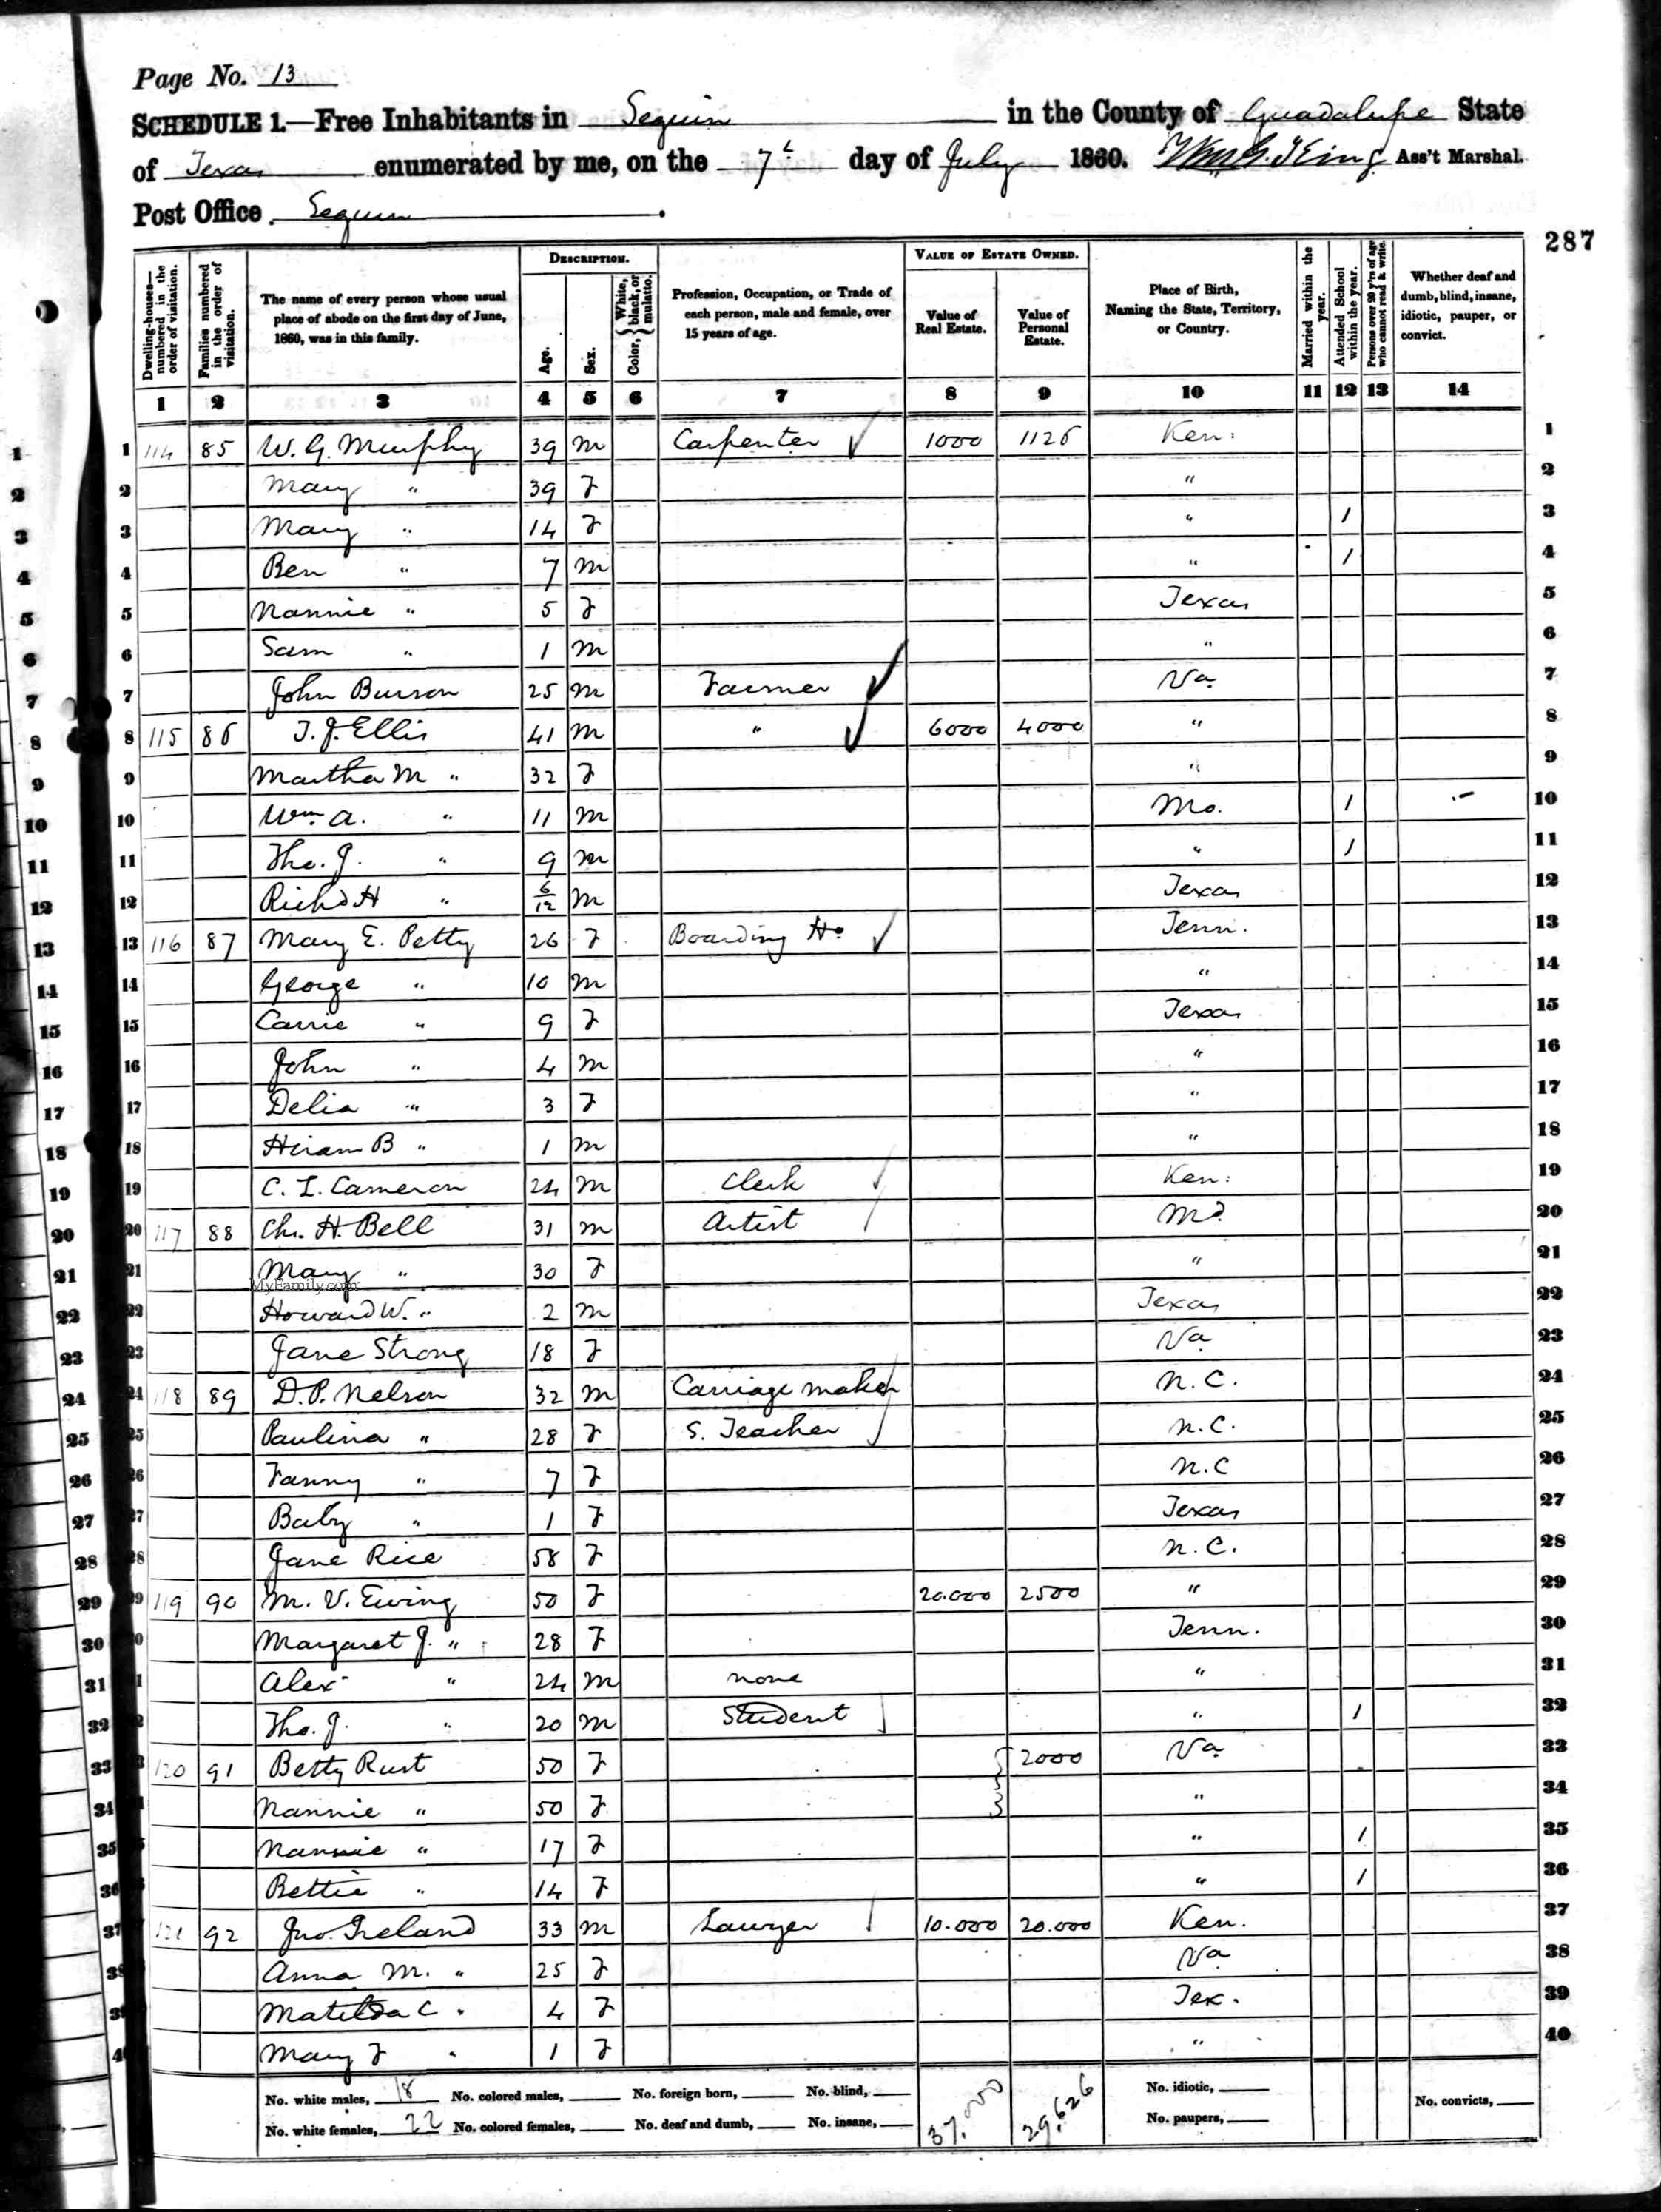 Page No. 13
SCHEDULE 1.—Free Inhabitants in Seguin in the County of Guadalupe State
of Texas enumerated by me, on the 7th day of July 1860. Wm. G. King Ass't Marshal.
Post Office Seguin.
287
DESCRIPTION. VALUE OF ESTATE OWNED.
Dwelling-houses—numbered in the order of visitation. Families numbered in the order of visitation. The name of every person whose usual place of abode on the first day of June, 1860, was in this family. Age. Sex. Color, { White, black, or mulatto. Profession, Occupation, or Trade of each person, male and female, over 15 years of age. Value of Real Estate. Value of Personal Estate. Place of Birth, Naming the State, Territory, or Country. Married within the year. Attended School within the year. Persons over 20 y'rs of age who cannot read & write. Whether deaf and dumb, blind, insane, idiotic, pauper, or convict.
1 2 3 4 5 6 7 8 9 10 11 12 13 14
1 1 114 85 W. G. Murphy 39 m Carpenter 1000 1126 Ken: 1
2 2 Mary " 39 F " 2
3 3 Mary " 14 F " 1 3
4 4 Ben " 7 m " 1 4
5 5 Nannie " 5 F Texas 5
6 6 Sam " 1 m " 6
7 7 John Burson 25 m Farmer Va 7
8 8 115 86 T. J. Ellis 41 m " 6000 4000 " 8
9 9 Martha M " 32 F " 9
10 10 Wm A. " 11 m Mo. 1 10
11 11 Tho. J. " 9 m " 1 11
12 12 Richd H " 6/12 m Texas 12
13 13 116 87 Mary E. Petty 26 F Boarding Ho Tenn. 13
14 14 George " 10 m " 14
15 15 Carrie " 9 F Texas 15
16 16 John " 4 m " 16
17 17 Delia " 3 F " 17
18 18 Hiram B " 1 m " 18
19 19 C. L. Cameron 24 m Clerk Ken: 19
20 20 117 88 Ch. H. Bell 31 m Artist Md 20
21 21 Mary " 30 F " 21
MyFamily.com
22 22 Howard W. " 2 m Texas 22
23 23 Jane Strong 18 F Va 23
24 24 118 89 D. P. Nelson 32 m Carriage maker N.C. 24
25 25 Paulina " 28 F S. Teacher N.C. 25
26 26 Fanny " 7 F N.C 26
27 27 Baby " 1 F Texas 27
28 28 Jane Rice 58 F N.C. 28
29 29 119 90 M. V. Ewing 50 F 20.000 2500 " 29
30 0 Margaret J. " 28 F Tenn. 30
31 1 Alex " 24 m none " 31
32 2 Tho. J. " 20 m Student " 1 32
33 3 120 91 Betty Rust 50 F 2000 Va 33
34 Nannie " 50 F " 34
35 Nannie " 17 F " 1 35
36 Bettie " 14 F " 1 36
37 121 92 Jno. Ireland 33 m Lawyer 10.000 20.000 Ken. 37
38 Anna M. " 25 F Va 38
39 Matilda C " 4 F Tex. 39
40 Mary F " 1 F " 40
No. white males, 18 No. colored males, No. foreign born, No. blind, 37,000 29,626 No. idiotic, No. convicts,
No. white females, 22 No. colored females, No. deaf and dumb, No. insane, No. paupers,